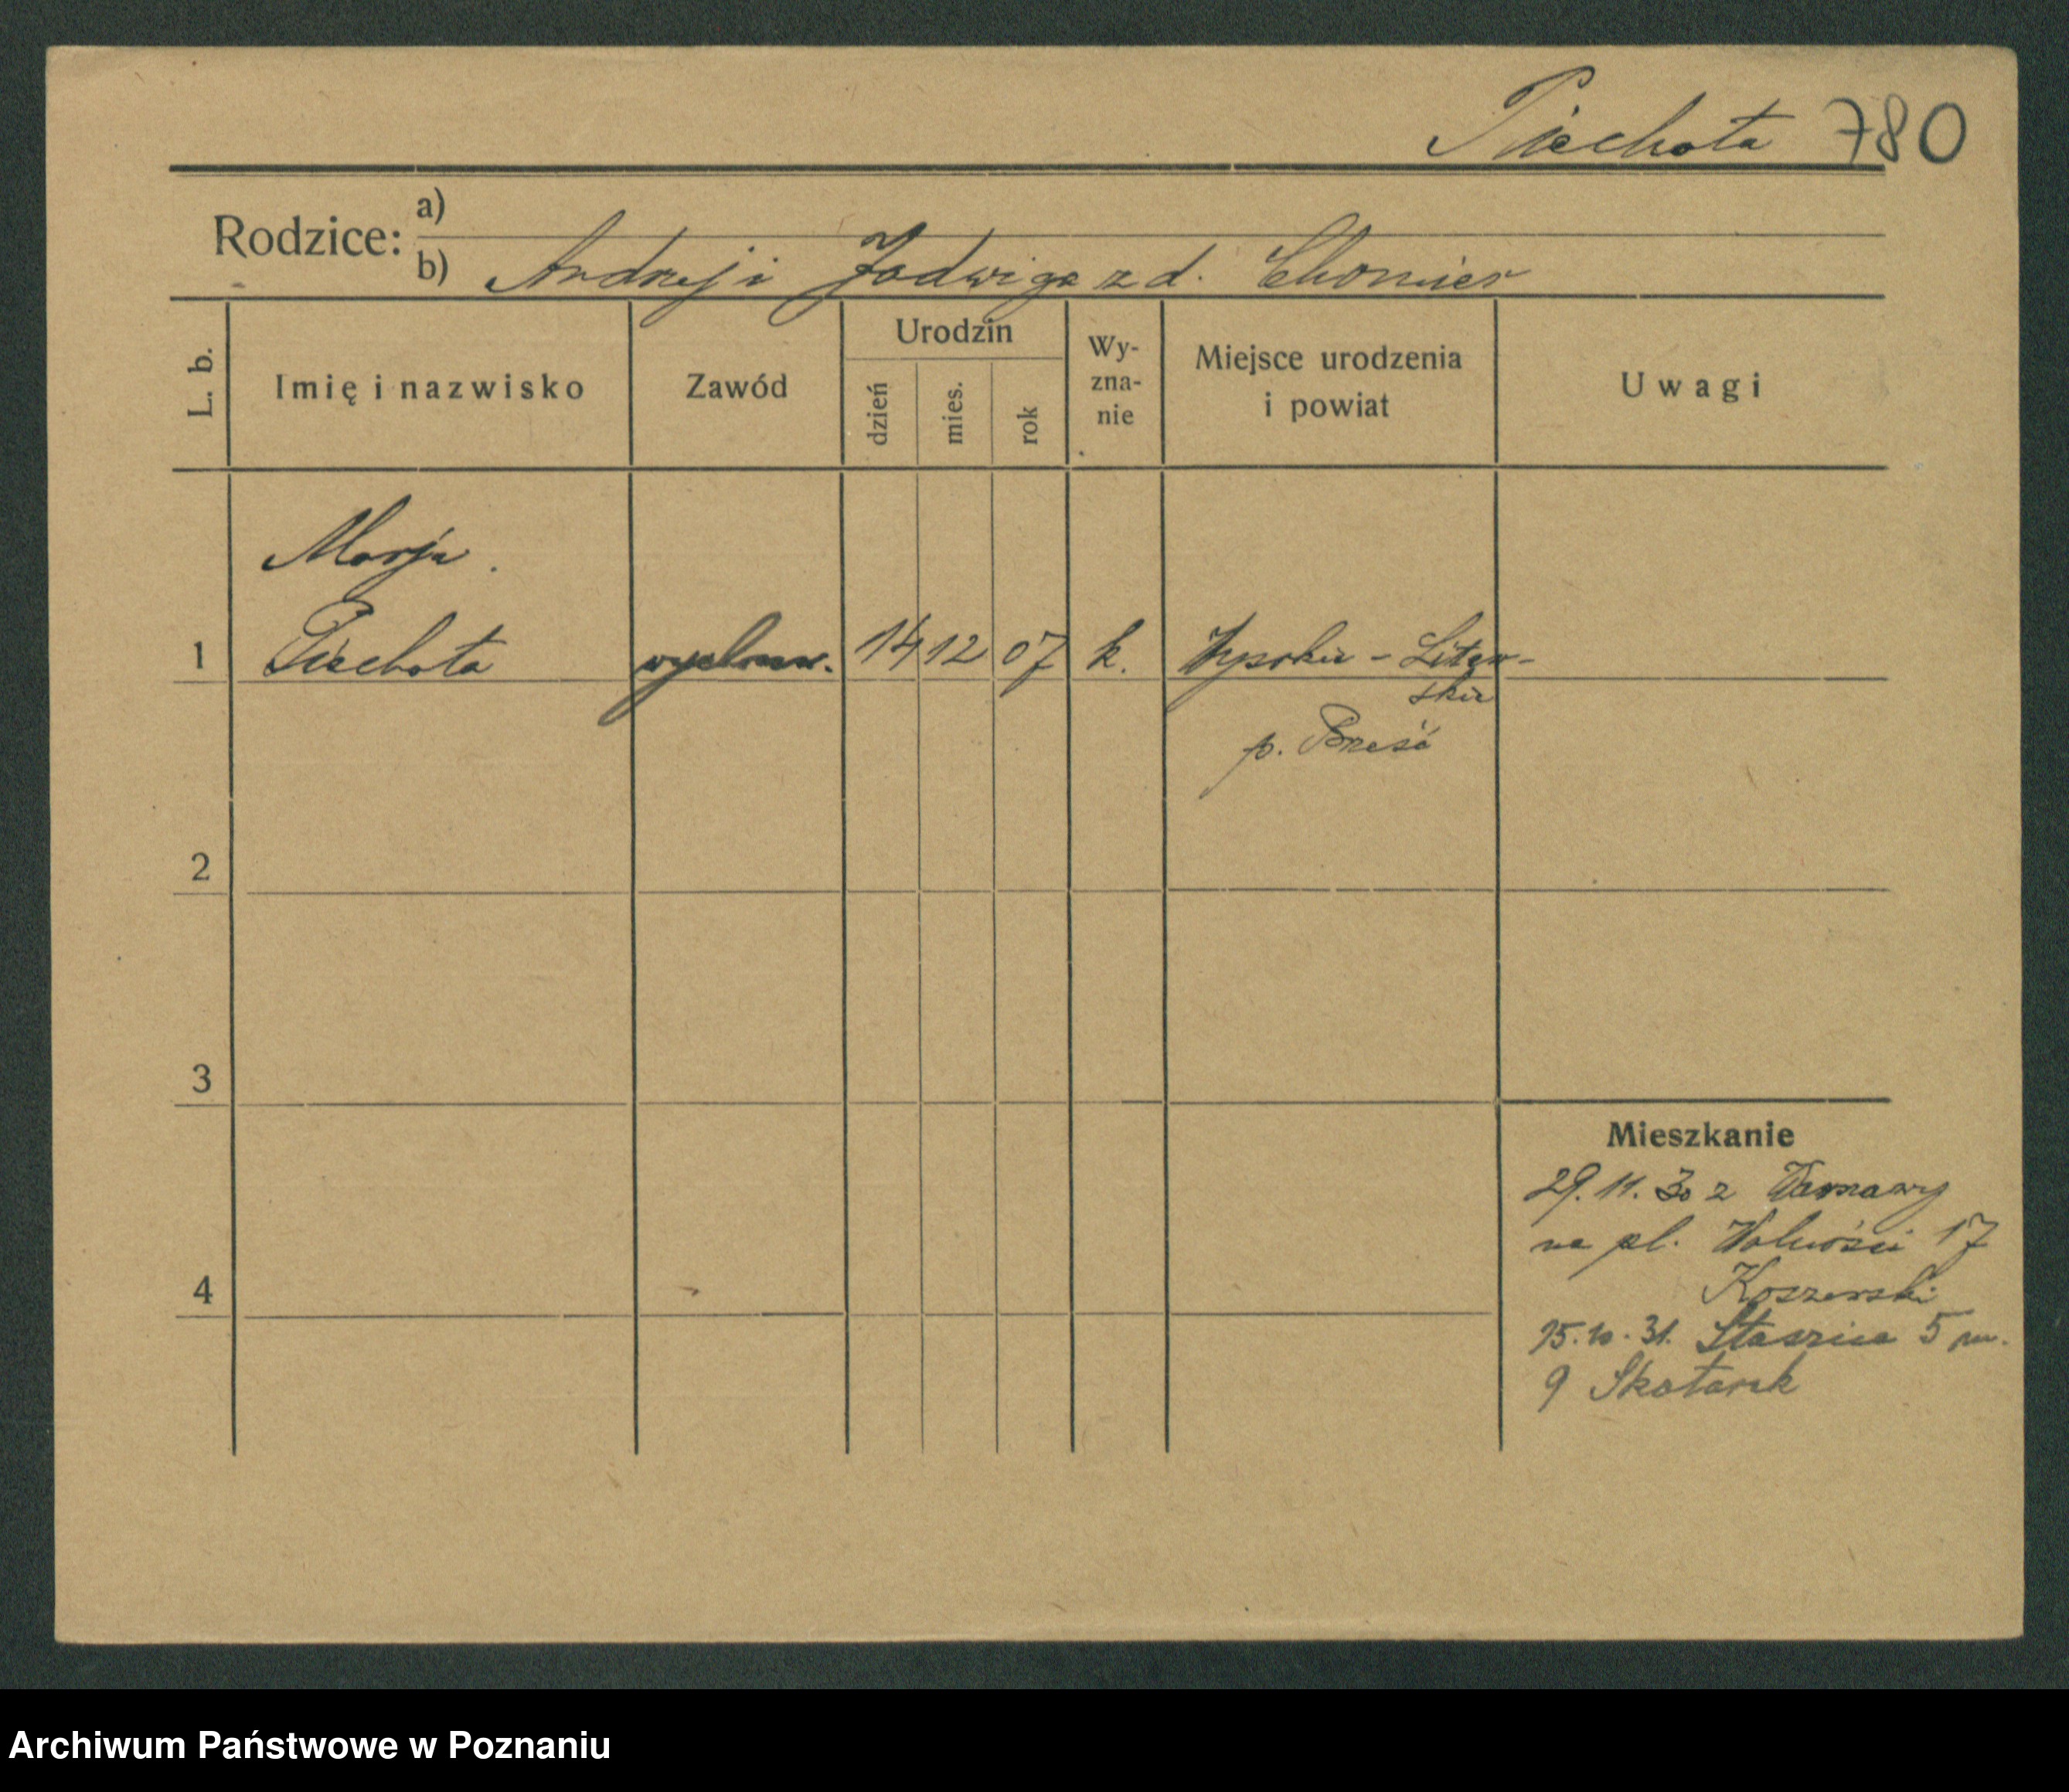 Piechota 780
Rodzice:
a)
b) Andrzej i Jadwiga z d. Chomicz
L. b.
Imię i nazwisko
Zawód
Urodzin
dzień
mies.
rok
Wy-
zna-
nie
Miejsce urodzenia
i powiat
Uwagi
Marja
1 Piechota 14 12 07 k. Wysokie - Litew-
skie
p. Brześć
2
3
4
Mieszkanie
29.11.30 z Warszawy
na pl. Wolności 17
Koszewski
15.10.31. Staszica 5 m.
9 Skotarek
Archiwum Państwowe w Poznaniu